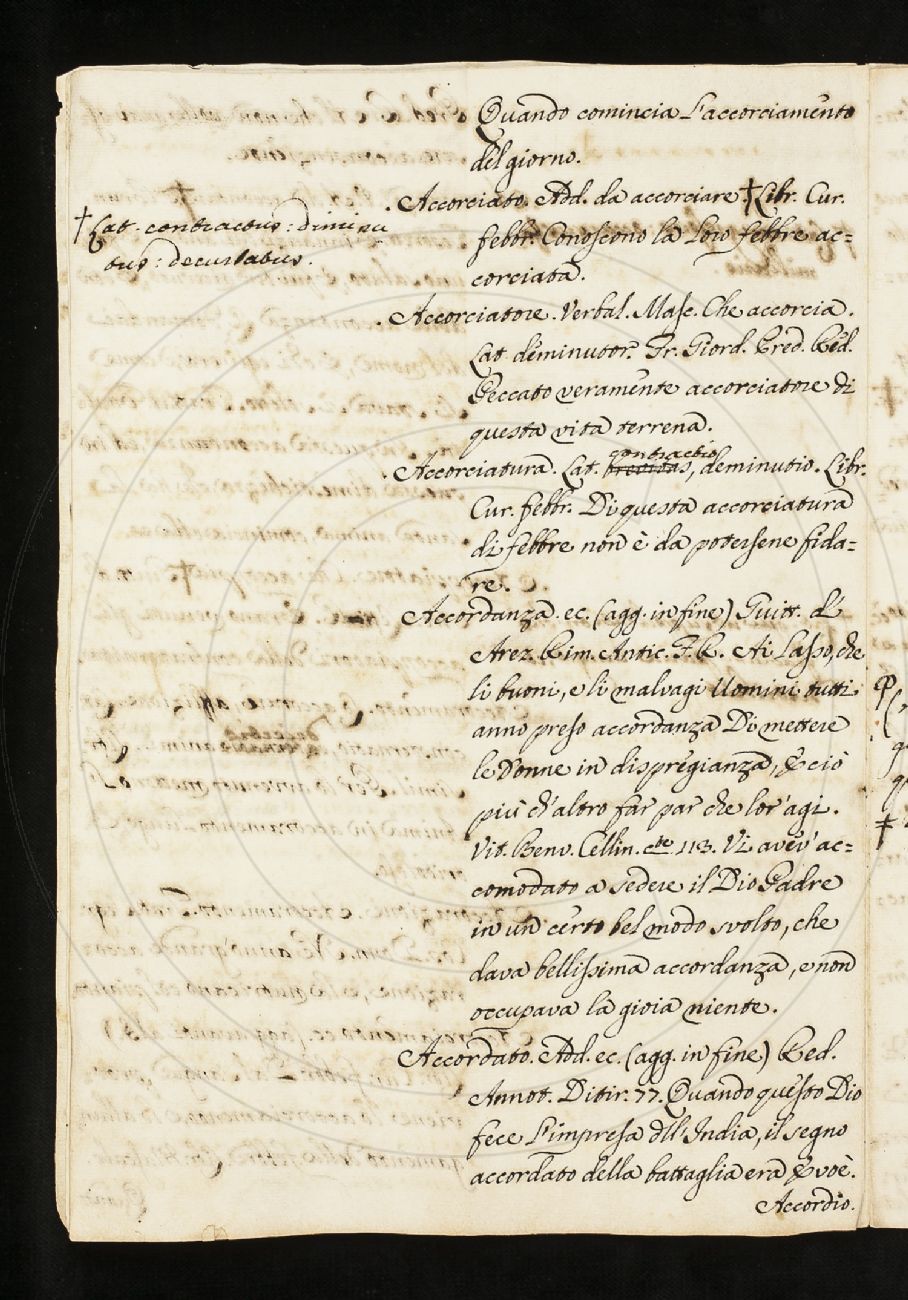 Quando comincia l'accorciamento
del giorno.
. Accorciato. Add. da accorciare. † Libr. Cur.
† Lat. contractus: diminu
tus: decurtatus.
febbr. Conoscono la loro febbre ac=
corciata.
. Accorciatore. Verbal. Masc. Che accorcia.
Lat. deminutor. Fr. Giord. Pred. Red.
Peccato veramente accorciatore di
questa vita terrena.
contractio
. Accorciatura. Lat. brevitas, deminutio. Libr.
Cur. febbr. Di questa accorciatura
di febbre non è da potersene fida=
re.
Accordanza. ec. (agg. in fine) Guitt. d'
Arez. Rim. Antic. F. R. Ai lasso, che
li buoni, e li malvagi Uomini tutti
anno preso accordanza Di mettere
le Donne in dispregianza, E ciò
più ch'altro far par che lor' agi.
Vit. Benv. Cellin. cte 113. Vi avev' ac=
comodato a sedere il Dio Padre
in un certo bel modo svolto, che
dava bellissima accordanza, e non
occupava la gioia niente.
Accordato. Add. ec. (agg. in fine) Red.
Annot. Ditir. 77. Quando questo Dio
fece l'impresa dll' India, il segno
accordato della battaglia era Evoè.
Accordio.